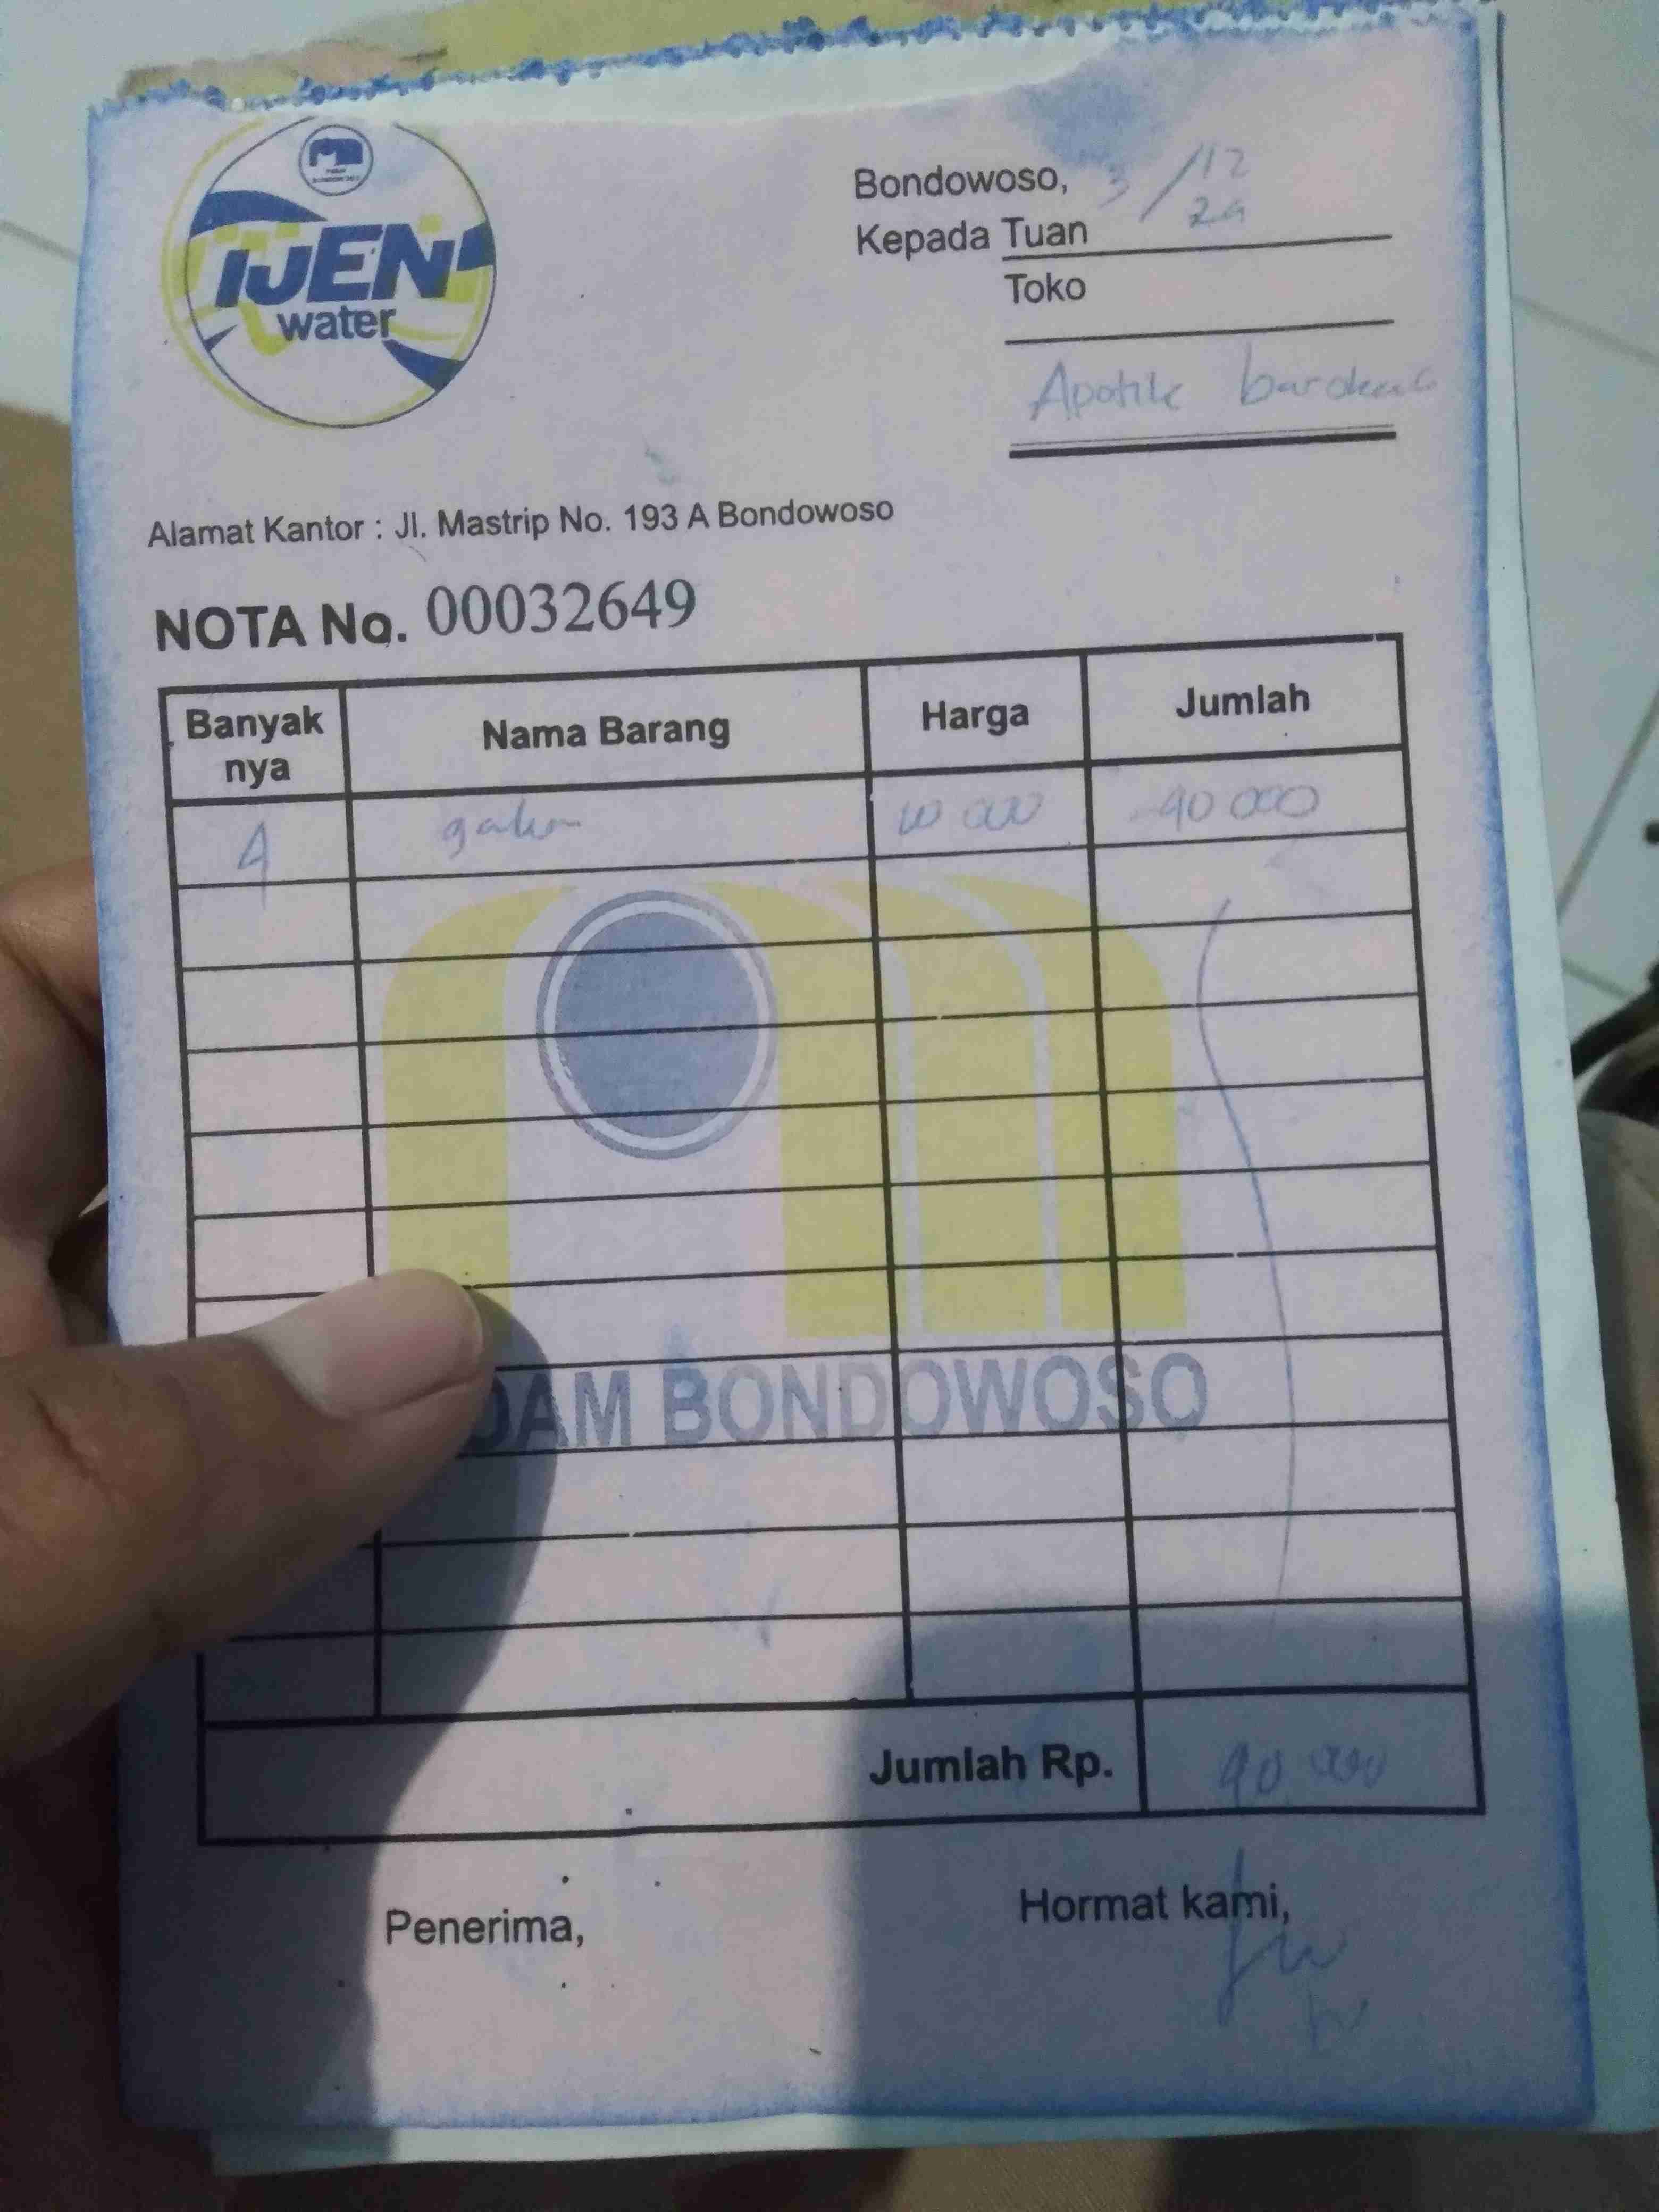 IJEN
water
Bondowoso, 3/12
24
Kepada Tuan
Toko
Apotik
Alamat Kantor : Jl. Mastrip No. 193 A Bondowoso
NOTA No. 00032649
Banyak nya Nama Barang Harga Jumlah
4 galon 10 000 40 000
DAM BONDOWOSO
Jumlah Rp. 40 000
Penerima, Hormat kami,